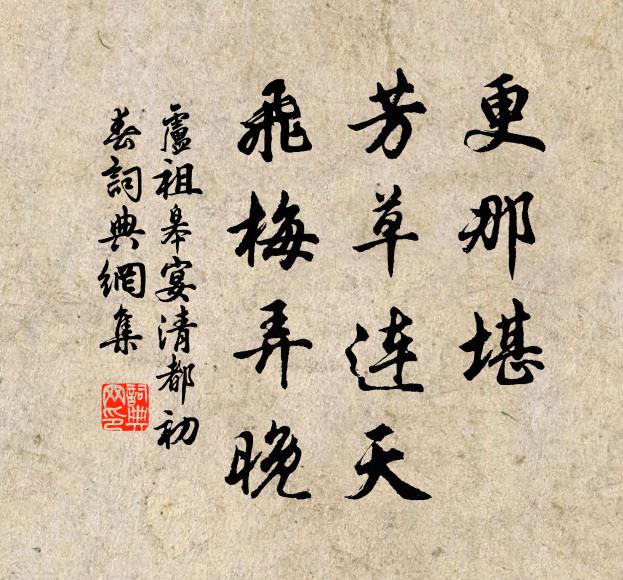 更那堪
芳草连天
飛梅弄晚
盧祖皋宴清都初
春詞典網集
詞典
网印